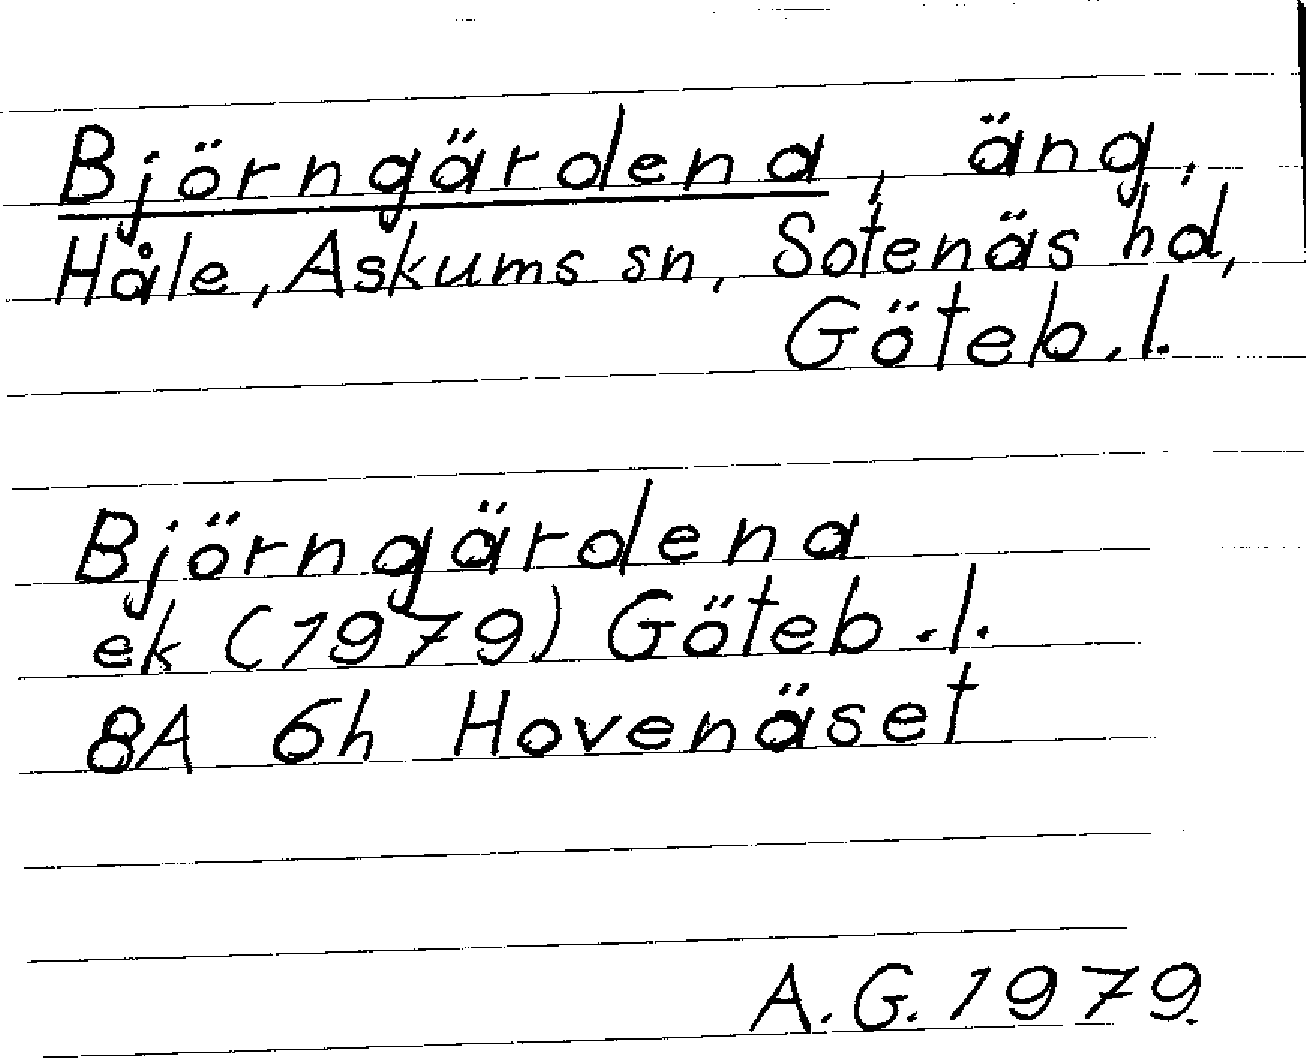 Björngärdena, äng,
Håle, Askums sn, Sotenäs hd,
Göteb.l.
Björngärdena
ek (1979) Göteb.l.
8A 6h Hovenäset
A.G. 1979.